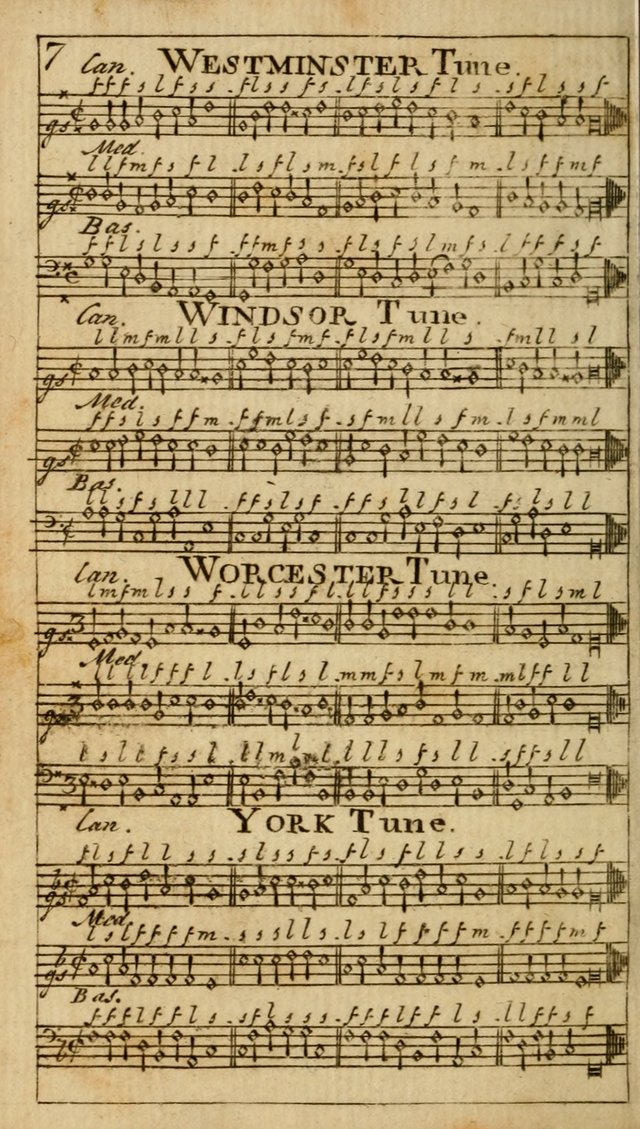 7 Can. WESTMINSTER Tune.
f f f s l f s s . f l s s f . l f s l s f l s . s f l s s f
gs
Med.
l l f m f s f l . l s f l s m . f s l f l s f m . s s f f m f
gs
Bas.
f f l s l s s f . f f m f s s . f l s f s l m f s . l f f f s f
Can. WINDSOR Tune.
l l m f m l l s . f l s f m f . f l s f m l l s . f m l l s l
gs
Med.
f f s l s f f m . f f m l s f . s f m l l s f m . l s f m m l
gs
Bas.
l l s f s l l l . s f s s f . f s s l l f s l . f s l s l l
Can. WORCESTER Tune.
l m f m l s s f . l l s s f l . l l f s s s l l . s f l s m l
gs 3
Med
l l l l f f f l . l s f l s l . m m f s l m f m . m l f f l l
gs 3
l s l l f s s l . l l m l l l f s l l . s f f s l l
3
Can. YORK Tune.
f l s f l l s . s l s s f . f s f l l s s . l f l s s f
gs
Med
l s l f f f f m . s s s l l s . l s l f f f f m . f f f f m f
gs
Bas.
f f f l f f l s . s f l s s . f f f l f f l s . l f f s s f